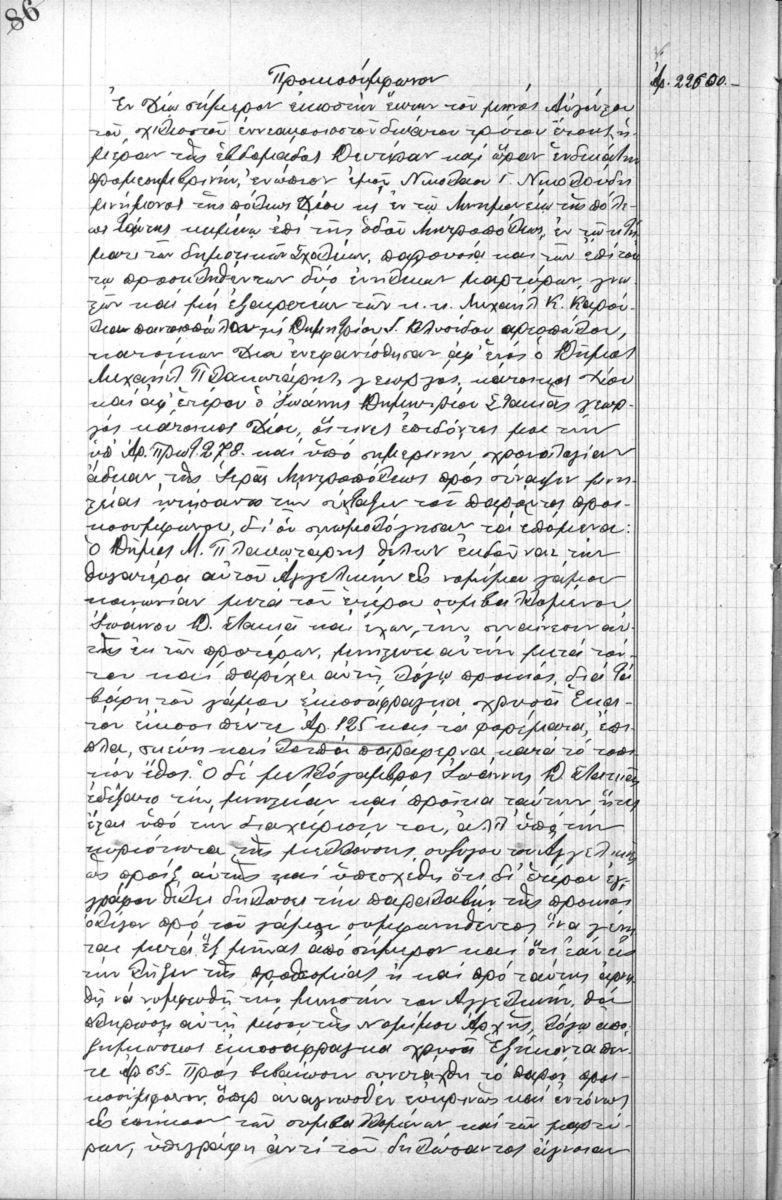 86
Προικοσύμφωνον
Ἀρ. 22500.—
Ἐν Χίῳ σήμερον εἰκοστὴν ἕκτην τοῦ μηνὸς Αὐγούστου
τοῦ χιλιοστοῦ ἐννεακοσιοστοῦ δεκάτου τρίτου ἔτους ἡ-
μέραν τῆς ἑβδομάδος Δευτέραν καὶ ὥραν ἑνδεκάτην
προμεσημβρινήν, ἐνώπιον ἐμοῦ Νικολάου Γ. Νικολούδη
μνήμονος τῆς πόλεως Χίου κ ἐν τῷ Μνημονείῳ τῆς πόλε-
ως ταύτης κειμένῳ ἐπὶ τῆς ὁδοῦ Μητροπόλεως, ἐν τῷ κτή-
ματι τῶν δημοτικῶν Σχολείων, παρουσίᾳ καὶ τῶν ἐπὶ τού-
τῳ προσκληθέντων δύο ἐνηλίκων μαρτύρων, γνω-
στῶν καὶ μὴ ἐξαιρετέων τῶν κ. κ. Μιχαὴλ Κ. Καρού-
λια παντοπώλου κ Δημητρίου Γ. ἀρτοπώλου,
κατοίκων Χίου ἐνεφανίσθησαν ἀφ' ἑνὸς ὁ Δῆμος
Μιχαὴλ Πλακωτάρης, γεωργός, κάτοικος Χίου
καὶ ἀφ' ἑτέρου ὁ Ἰωάννης Δημητρίου Στακιᾶς γεωρ-
γὸς κάτοικος Χίου, οἵτινες ἐπιδόντες μοι τὴν
ὑπ' Ἀρ. Πρωτ. 278. καὶ ὑπὸ σημερινὴν χρονολογίαν
ἄδειαν τῆς Ἱερᾶς Μητροπόλεως πρὸς σύναψιν μνη-
στείας ᾐτήσαντο τὴν σύνταξιν τοῦ παρόντος προι-
κοσυμφώνου, δι' οὗ συνωμολόγησαν τὰ ἑπόμενα:
Ὁ Δῆμος Μ. Πλακωτάρης θέλων ἐκδοῦναι τὴν
θυγατέρα αὐτοῦ Ἀγγελικὴν εἰς νομίμου γάμου
κοινωνίαν μετὰ τοῦ ἑτέρου συμβαλλομένου
Ἰωάννου Δ. Στακιᾶ καὶ ἔχων τὴν συναίνεσιν αὐ-
τῆς ἐκ τῶν προτέρων, μνηστεύει αὐτὴν μετὰ τού-
του καὶ παρέχει αὐτῇ λόγῳ προικὸς διὰ τὰ
βάρη τοῦ γάμου εἰκοσάφραγκα χρυσᾶ Ἑκα-
τὸν εἴκοσι πέντε Ἀρ. 125 καὶ τὰ φορέματα, ἔπι-
πλα, σκεύη καὶ λοιπὰ παράφερνα κατὰ τὸ τοπι-
κὸν ἔθος. Ὁ δὲ μελλόγαμβρος Ἰωάννης Δ. Στακιᾶς
ἐδέξατο τὴν μνηστείαν καὶ προῖκα ταύτην ἥτις
ἔσται ὑπὸ τὴν διαχείρισίν του, ἀλλ' ὑπὸ τὴν
κυριότητα τῆς μελλούσης συζύγου του Ἀγγελικῆς
ὡς προὶξ αὐτῆς καὶ ὑπεσχέθη ὅτι δι' ἑτέρου ἐγ-
γράφου θέλει δηλώσει τὴν παραλαβὴν τῆς προικὸς
ὀλίγον πρὸ τοῦ γάμου συμφωνηθέντος ἵνα γένη-
ται μετὰ ἓξ μῆνας ἀπὸ σήμερον καὶ ὅτι ἐὰν εἰς
τὴν λῆξιν τῆς προθεσμίας ἢ καὶ πρὸ ταύτης ἀρνη-
θῇ νὰ νυμφευθῇ τὴν μνηστήν του Ἀγγελικήν, θὰ
πληρώσῃ αὐτῇ μέσον τῆς Νομίμου Ἀρχῆς, λόγῳ ἀπο-
ζημιώσεως εἰκοσάφραγκα χρυσᾶ Ἑξήκοντα πέν-
τε Ἀρ 65. Πρὸς βεβαίωσιν συνετάχθη τὸ παρὸν προι-
κοσύμφωνον, ὅπερ ἀναγνωσθὲν εὐκρινῶς καὶ ἐντόνως
εἰς ἐπήκοον τῶν συμβαλλομένων καὶ τῶν μαρτύ-
ρων, ὑπεγράφη ἀντὶ τοῦ δηλώσαντος ἄγνοιαν